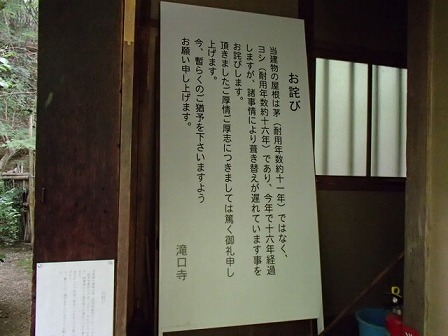 お詫び
当建物の屋根は茅（耐用年数約十一年）ではなく、
ヨシ（耐用年数約十六年）であり、今年で十六年経過
しますが、諸事情により葺き替えが遅れています事を
お詫びします。
頂きましたご厚情ご厚志につきましては篤く御礼申し
上げます。
今、暫らくのご猶予を下さいますよう
お願い申し上げます。
滝口寺